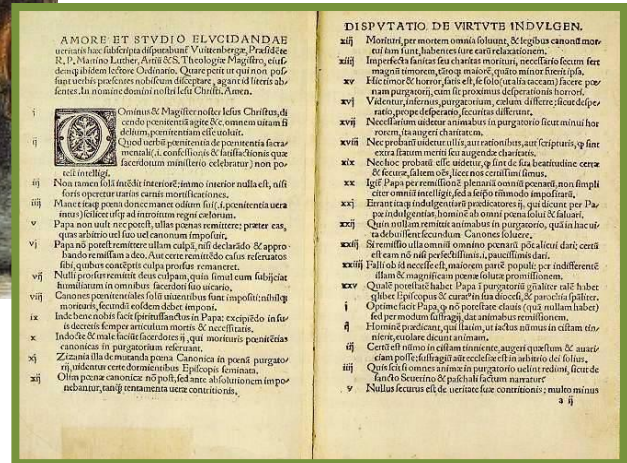 AMORE ET STVDIO ELVCIDANDAE
ueritatis hæc subscripta disputabunt Vuittenbergæ, Præsidẽte
R. P. Martino Luther, Artiũ & S. Theologiæ Magistro, eius
demq; ibidem lectore Ordinario. Quare petit ut qui non pos
sunt uerbis præsentes nobiscum disceptare, agant id literis ab
sentes. In nomine domini nostri Iesu Christi. Amen.
i Ominus & Magister noster Iesus Christus, di
cendo pœnitentiã agite &c, omnem uitam fi
delium, pœnitentiam esse uoluit.
ij Quod uerbũ pœnitentia de pœnitentia sacra
mentali (.i. confessionis & satisfactionis quæ
sacerdotum ministerio celebratur) non po
test intelligi.
iij Non tamen solã intẽdit interiorẽ: immo interior nulla est, nisi
foris operetur uarias carnis mortificationes.
iiij Manet itaq; pœna donec manet odium sui (.i. pœnitentia uera
intus) scilicet usq; ad introitum regni cælorum.
v Papa non uult nec potest, ullas pœnas remittere: præter eas,
quas arbitrio uel suo uel canonum imposuit.
vj Papa nõ potest remittere ullam culpã, nisi declarãdo & appro
bando remissam a deo. Aut certe remittẽdo casus reseruatos
sibi, quibus contẽptis culpa prorsus remaneret.
vij Nulli prorsus remittit deus culpam, quin simul eum subijciat
humiliatum in omnibus sacerdoti suo uicario.
viij Canones pœnitentiales solũ uiuentibus sunt impositi: nihilq;
morituris, secundũ eosdem debet imponi.
ix Inde bene nobis facit spiritussanctus in Papa: excipiẽdo in su
is decretis semper articulum mortis & necessitatis.
x Indocte & male faciũt sacerdotes ij, qui morituris pœnitẽtias
canonicas in purgatorium reseruant.
xj Zizania illa de mutanda pœna Canonica in pœnã purgato
rij, uidentur certe dormientibus Episcopis seminata.
xij Olim pœnæ canonicæ nõ post, sed ante absolutionem impo
nebantur, tanq̃ tentamenta ueræ contritionis.
DISPVTATIO DE VIRTVTE INDVLGEN.
xiij Morituri, per mortem omnia soluunt, & legibus canonũ mor
tui iam sunt, habentes iure earũ relaxationem.
xiiij Imperfecta sanitas seu charitas morituri, necessario secum fert
magnũ timorem, tãtoq; maiorẽ, quãto minor fuerit ipsa.
xv Hic timor & horror, satis est, se solo (ut alia taceam) facere pœ
nam purgatorij, cum sit proximus desperationis horrori.
xvj Videntur, infernus, purgatorium, cælum differre: sicut despe
ratio, prope desperatio, securitas differunt.
xvij Necessarium uidetur animabus in purgatorio sicut minui hor
rorem, ita augeri charitatem.
xviij Nec probatũ uidetur ullis, aut rationibus, aut scripturis, q̃ sint
extra statum meriti seu augendæ charitatis.
xix Nec hoc probatũ esse uidetur, q̃ sint de sua beatitudine certæ
& securæ, saltem oẽs, licet nos certissimi simus.
xx Igit̃ Papa per remissionẽ plenariã omniũ pœnarũ, non simpli
citer omniũ intelligit, sed a seipso tm̃modo impositarũ.
xxj Errant itaq; indulgentiarũ prædicatores ij, qui dicunt per Pa
pæ indulgentias, hominẽ ab omni pœna solui & saluari.
xxij Quin nullam remittit animabus in purgatorio, quã in hac ui
ta debuissent secundum Canones soluere.
xxiij Si remissio ulla omniũ omnino pœnarũ põt alicui dari: certũ
est eam nõ nisi perfectissimis .i. paucissimis dari.
xxiiij Falli ob id necesse est, maiorem partẽ populi: per indifferentẽ
illam & magnificam pœnæ solutæ promissionem.
xxv Qualẽ potestatẽ habet Papa ĩ purgatoriũ generaliter talẽ habet
quilibet Episcopus & curatꝰ in sua diocesi, & parochia spãliter.
i Optime facit Papa, q̃ nõ potestate clauis (quã nullam habet)
sed per modum suffragij, dat animabus remissionem.
ij Hominẽ prædicant, qui statim, ut iactus nũmus in cistam tin
nierit, euolare dicunt animam.
iij Certũ est nũmo in cistam tinniente, augeri quæstum & auari
ciam posse; suffragiũ aũt ecclesiæ est in arbitrio dei solius.
iiij Quis scit si omnes animæ in purgatorio uelint redimi, sicut de
sancto Seuerino & paschali factum narratur
v Nullus securus est de ueritate suæ contritionis; multo minus
a ij